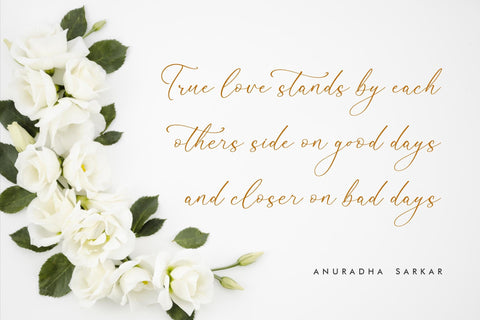 True love stands by each
others side on good days
and closer on bad days
ANURADHA SARKAR